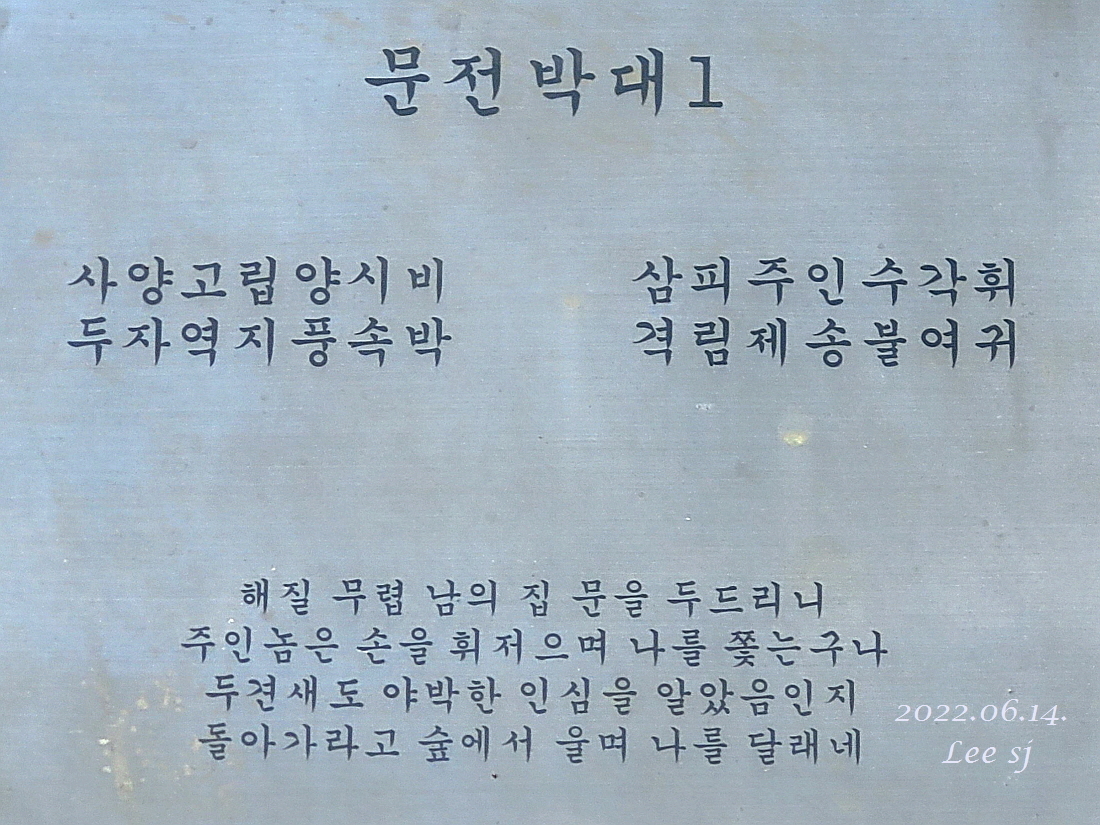 문전박대1
사양고립양시비 삼피주인수각휘
두자역지풍속박 격림제송불여귀
해질 무렵 남의 집 문을 두드리니
주인놈은 손을 휘저으며 나를 쫓는구나
두견새도 야박한 인심을 알았음인지
돌아가라고 숲에서 울며 나를 달래네
2022.06.14.
Lee sj